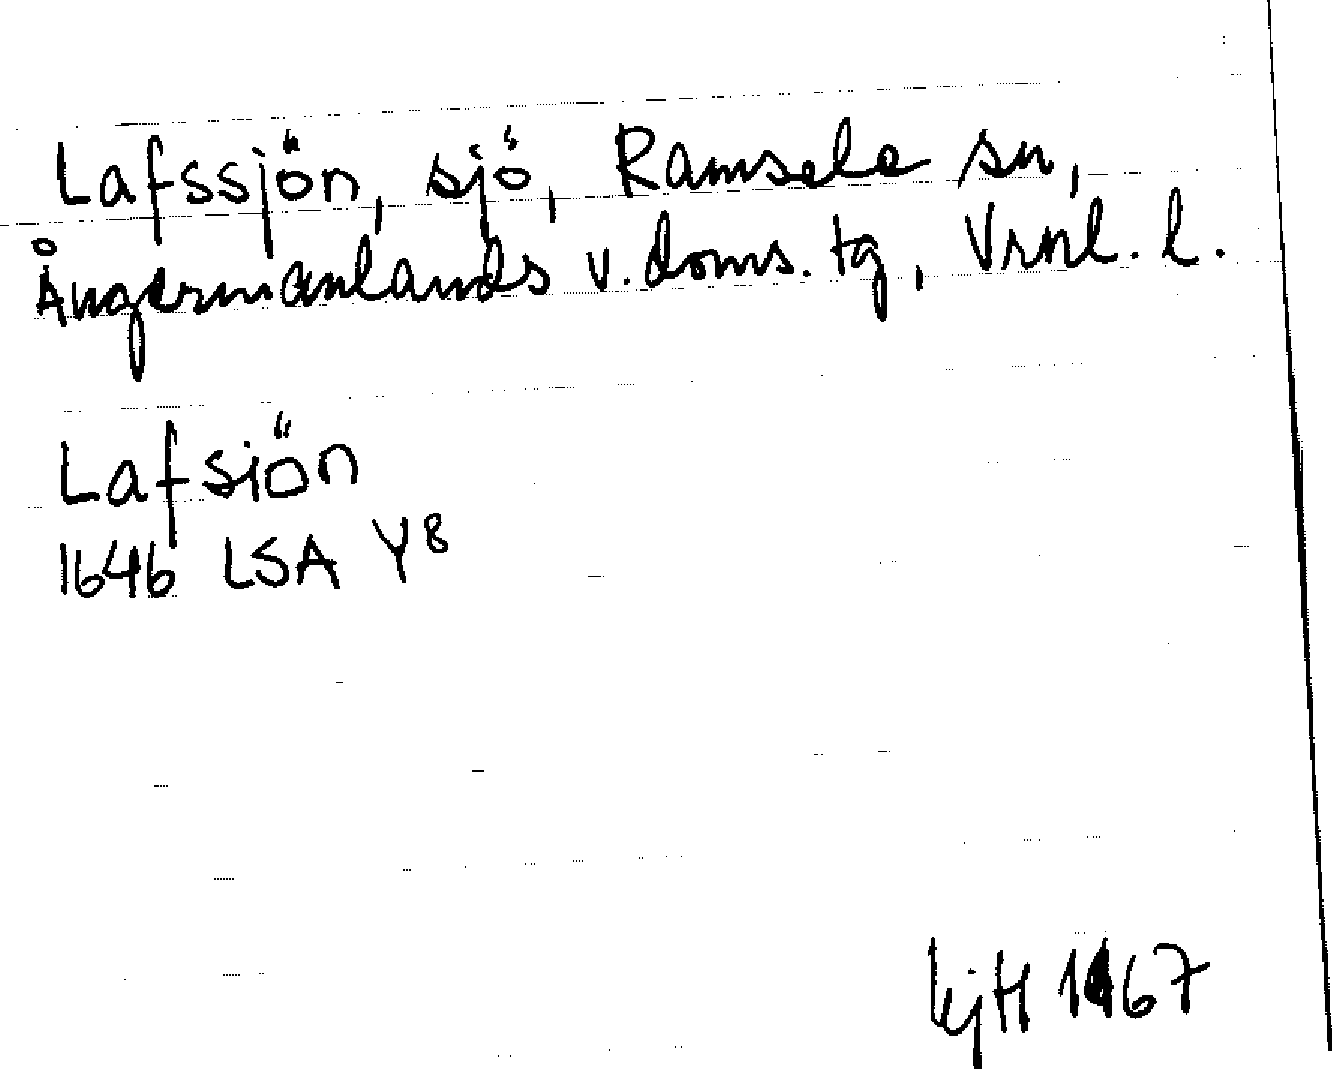 Lafssjön, sjö, Ramsele sn,
Ångermanlands v. doms. tg, Vrnl. l.
Lafsiön
1646 LSA Y8
1967